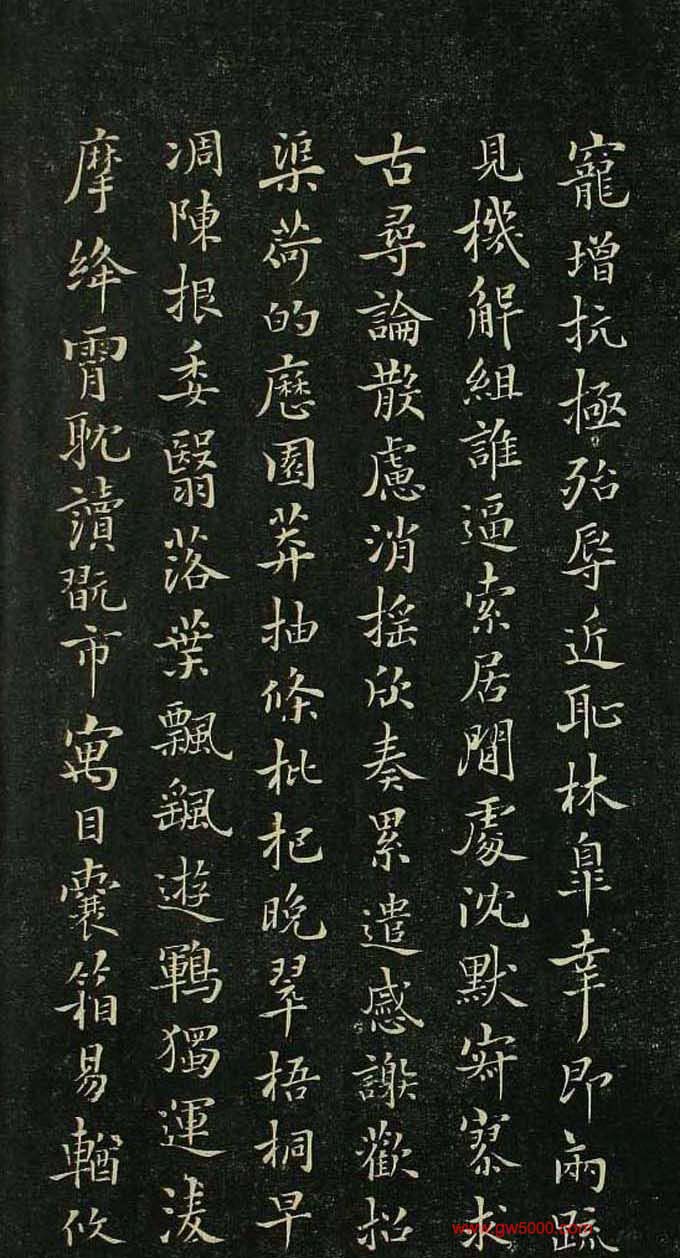 寵增抗極殆辱近恥林皐幸即兩疏
見機解組誰逼索居閒處沈默寂寥求
古尋論散慮消搖欣奏累遣感謝歡招
渠荷的歷園莽抽條枇杷晚翠梧桐早
凋陳根委翳落葉飄颻遊鵾獨運淩
摩絳霄耽讀翫市寓目囊箱易輶攸
www.gw5000.com